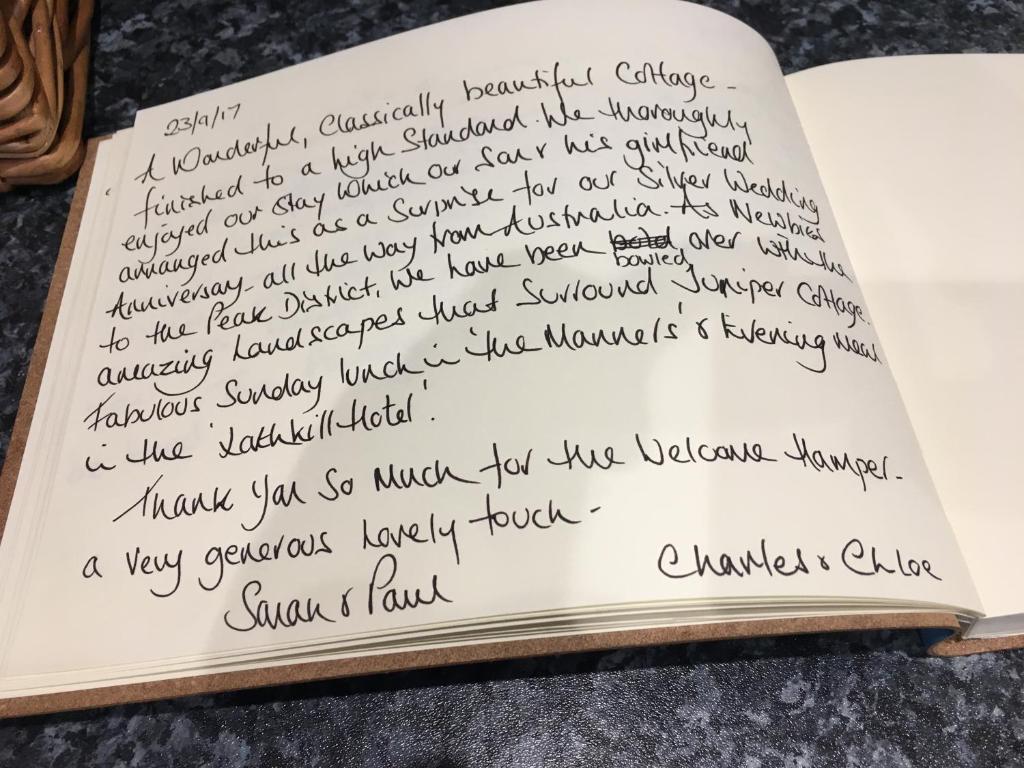 23/9/17
A Wonderful, Classically beautiful Cottage -
finished to a high Standard. We thoroughly
enjoyed our stay which our Son & his girlfriend
arranged this as a Surprise for our Silver Wedding
Anniversary - all the way from Australia. As Newbies
to the Peak District, We have been bowled over with the
amazing Landscapes that Surround Juniper Cottage.
Fabulous Sunday lunch in 'the Manners' & Evening meal
in the 'Lathkill Hotel'.
Thank you So Much for the Welcome Hamper -
a very generous lovely touch -
Sarah & Paul
Charles & Chloe